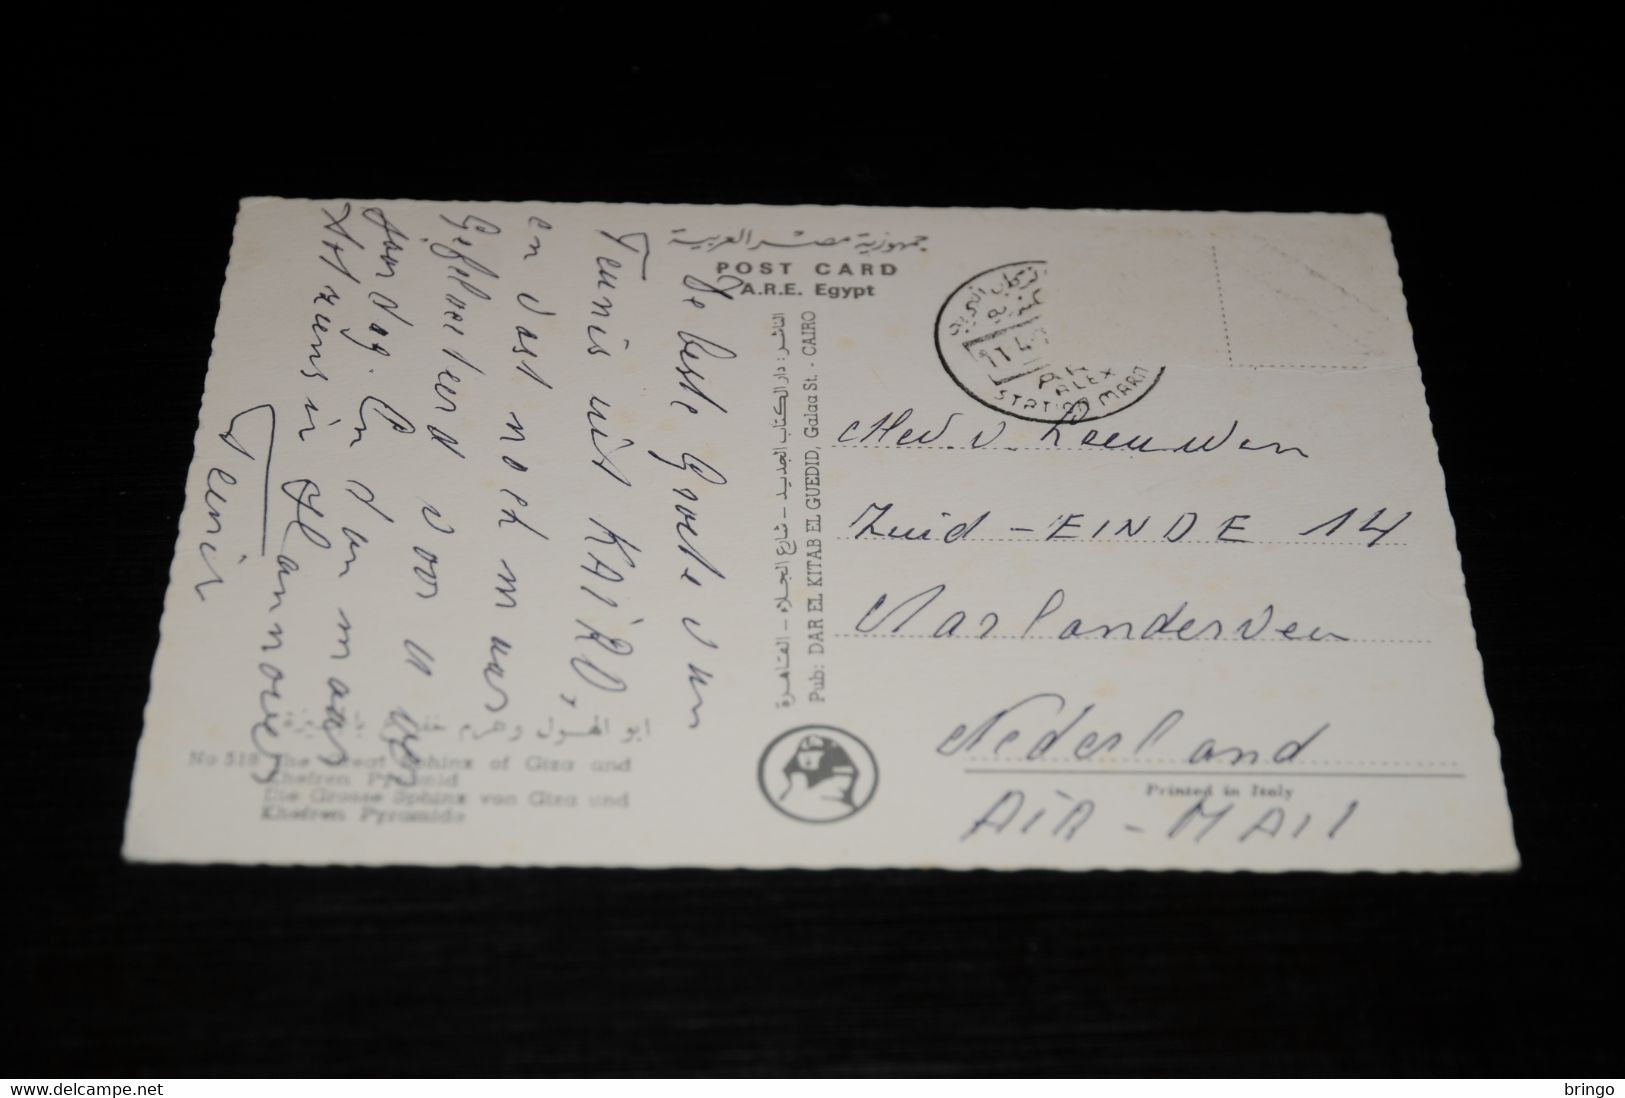 جمهورية مصر العربية
POST CARD
A.R.E. Egypt
De beste Groete van
Teunis uit KAiRO,
en vast noek maar
Gefeliseteerd voor u ver
Aardag. En dan maar
tot ziens in Hannover
Teunis
الناشر: دار الكتاب الجديد - شارع الجلاء - القاهرة
Pub: DAR EL KITAB EL GUEDID, Galaa St. - CAIRO
11.4.
ALEX
STATION MARM
Mev v. Leeuwen
Zuid - EINDE 14
Aarlanderveen
Nederland
Printed in Italy
AiR - MAil
ابو الهول وهرم
No 518 The Great Sphinx of Giza and
Khefren Pyramid
Die Grosse Sphinx von Giza und
Khefren Pyramide
www.delcampe.net
bringo